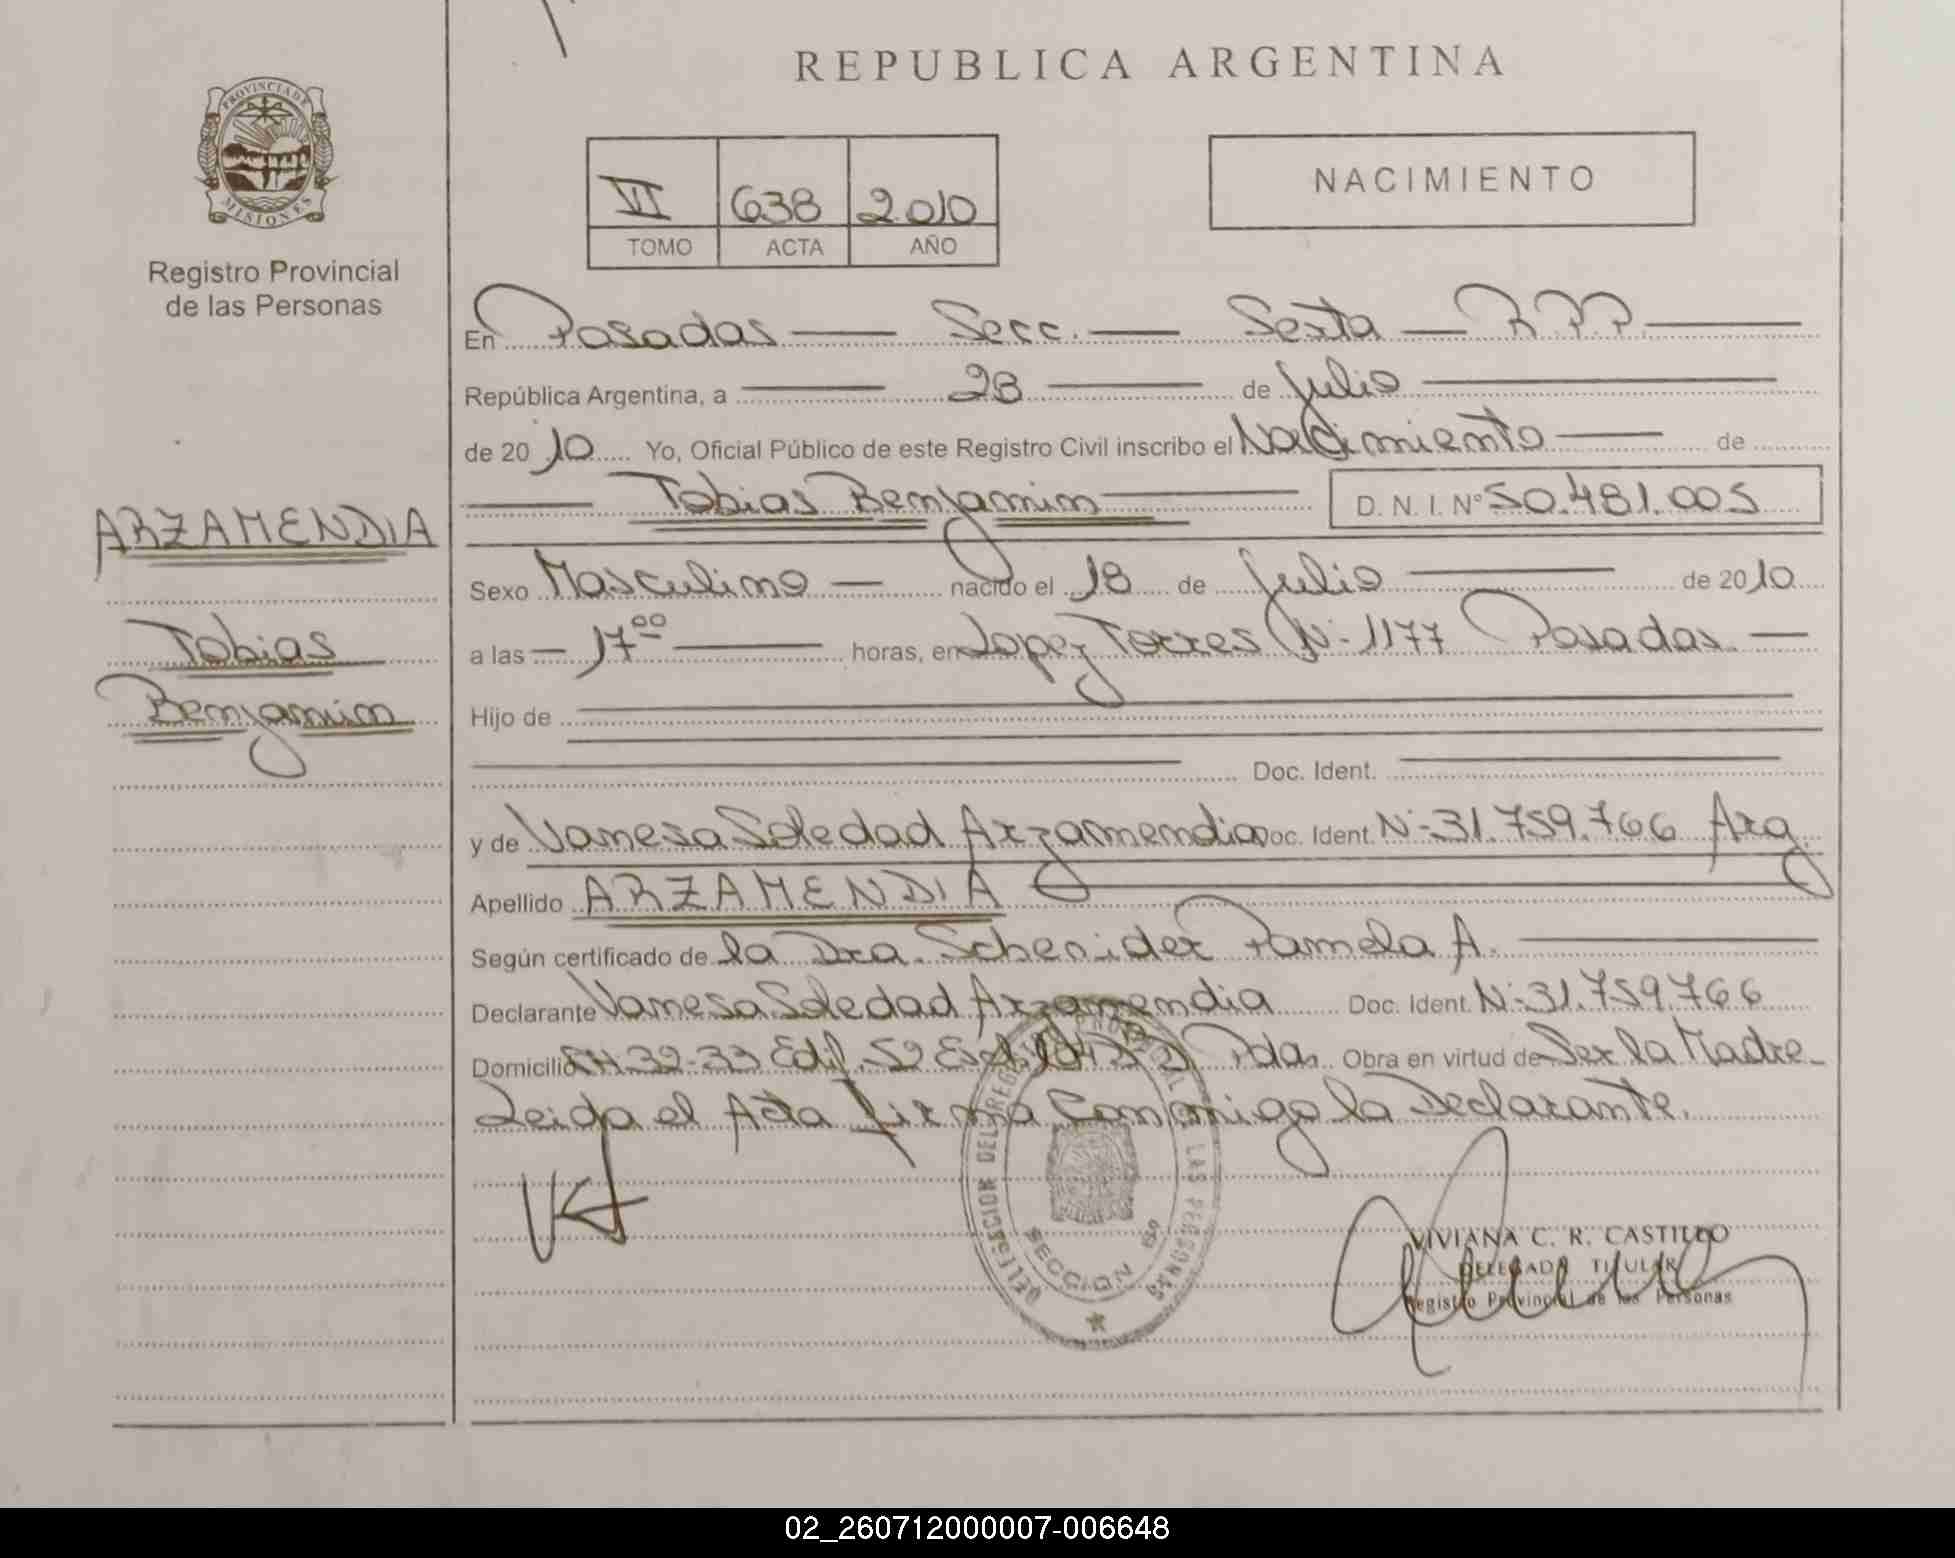 REPUBLICA ARGENTINA
PROVINCIA DE
MISIONES
Registro Provincial
de las Personas
VI 638 2010
TOMO ACTA AÑO
NACIMIENTO
En Posadas Secc. Sexta R.P.P.
República Argentina, a 28 de Julio
de 2010 Yo, Oficial Público de este Registro Civil inscribo el Nacimiento de
Tobias Benjamin D. N. I. Nº 50.481.005
ARZAMENDIA
Tobias
Benjamin
Sexo Masculino nacido el 18 de Julio de 2010
a las 17⁰⁰ horas, en Lopez Torres Nº 1177 Posadas
Hijo de
Doc. Ident.
y de Vanesa Soledad Arzamendia Doc. Ident. Nº 31.759.766 Arg.
Apellido ARZAMENDIA
Según certificado de la Dra. Schenider Pamela A.
Declarante Vanesa Soledad Arzamendia Doc. Ident. Nº 31.759.766
Domicilio 32-33 Edif. 52 Pdas. Obra en virtud de Ser la Madre
Leida el Acta firma Conmigo la Declarante.
DELEGACION DEL REGISTRO PROVINCIAL DE LAS PERSONAS
SECCION 6º
VIVIANA C. R. CASTILLO
DELEGADA TITULAR
Registro Provincial de las Personas
02_260712000007-006648